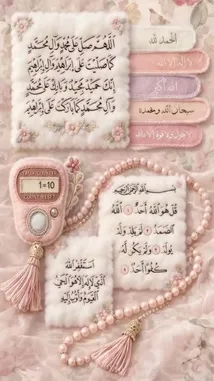 اللهم صل على محمد وآل محمد
كما صليت على إبراهيم وآل إبراهيم
إنك حميد مجيد وبارك على محمد
وآل محمد كما باركت على إبراهيم
الحمد لله
لا إله إلا الله
الله أكبر
سبحان الله وبحمده
لا حول ولا قوة إلا بالله
1=10
COUNT RESET
بسم الله الرحمن الرحيم
قل هو الله أحد ① الله
الصمد ② لم يلد ولم
يولد ③ ولم يكن له
كفوا أحد ④
أستغفر الله
الذي لا إله إلا هو الحي
القيوم وأتوب إليه